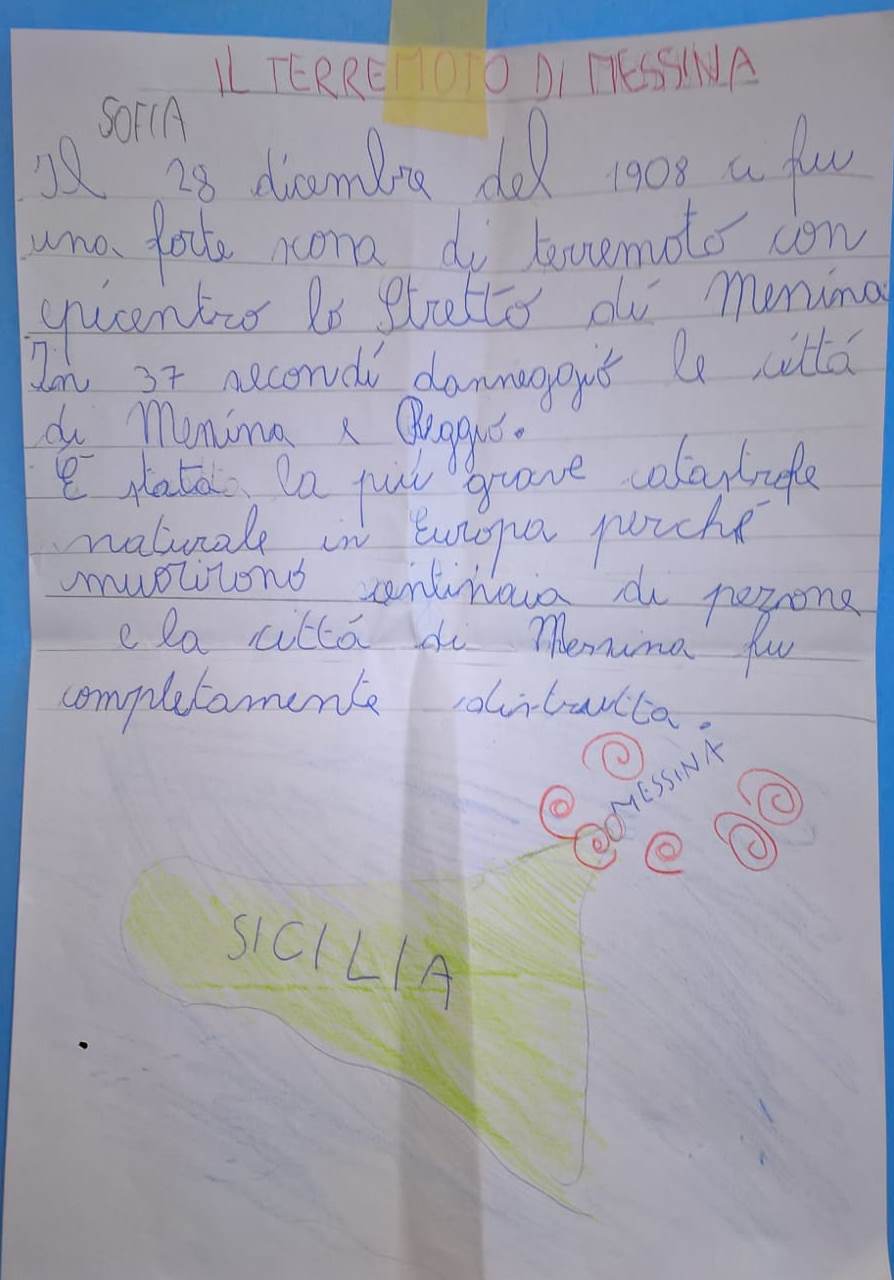 IL TERREMOTO DI MESSINA
SOFIA
Il 28 dicembre del 1908 ci fu
una forte scossa di terremoto con
epicentro lo Stretto di Messina.
In 37 secondi danneggiò le città
di Messina e Reggio.
È stata la più grave catastrofe
naturale in Europa perché
muorirono centinaia di persone
e la città di Messina fu
completamente distrutta.
MESSINA
SICILIA